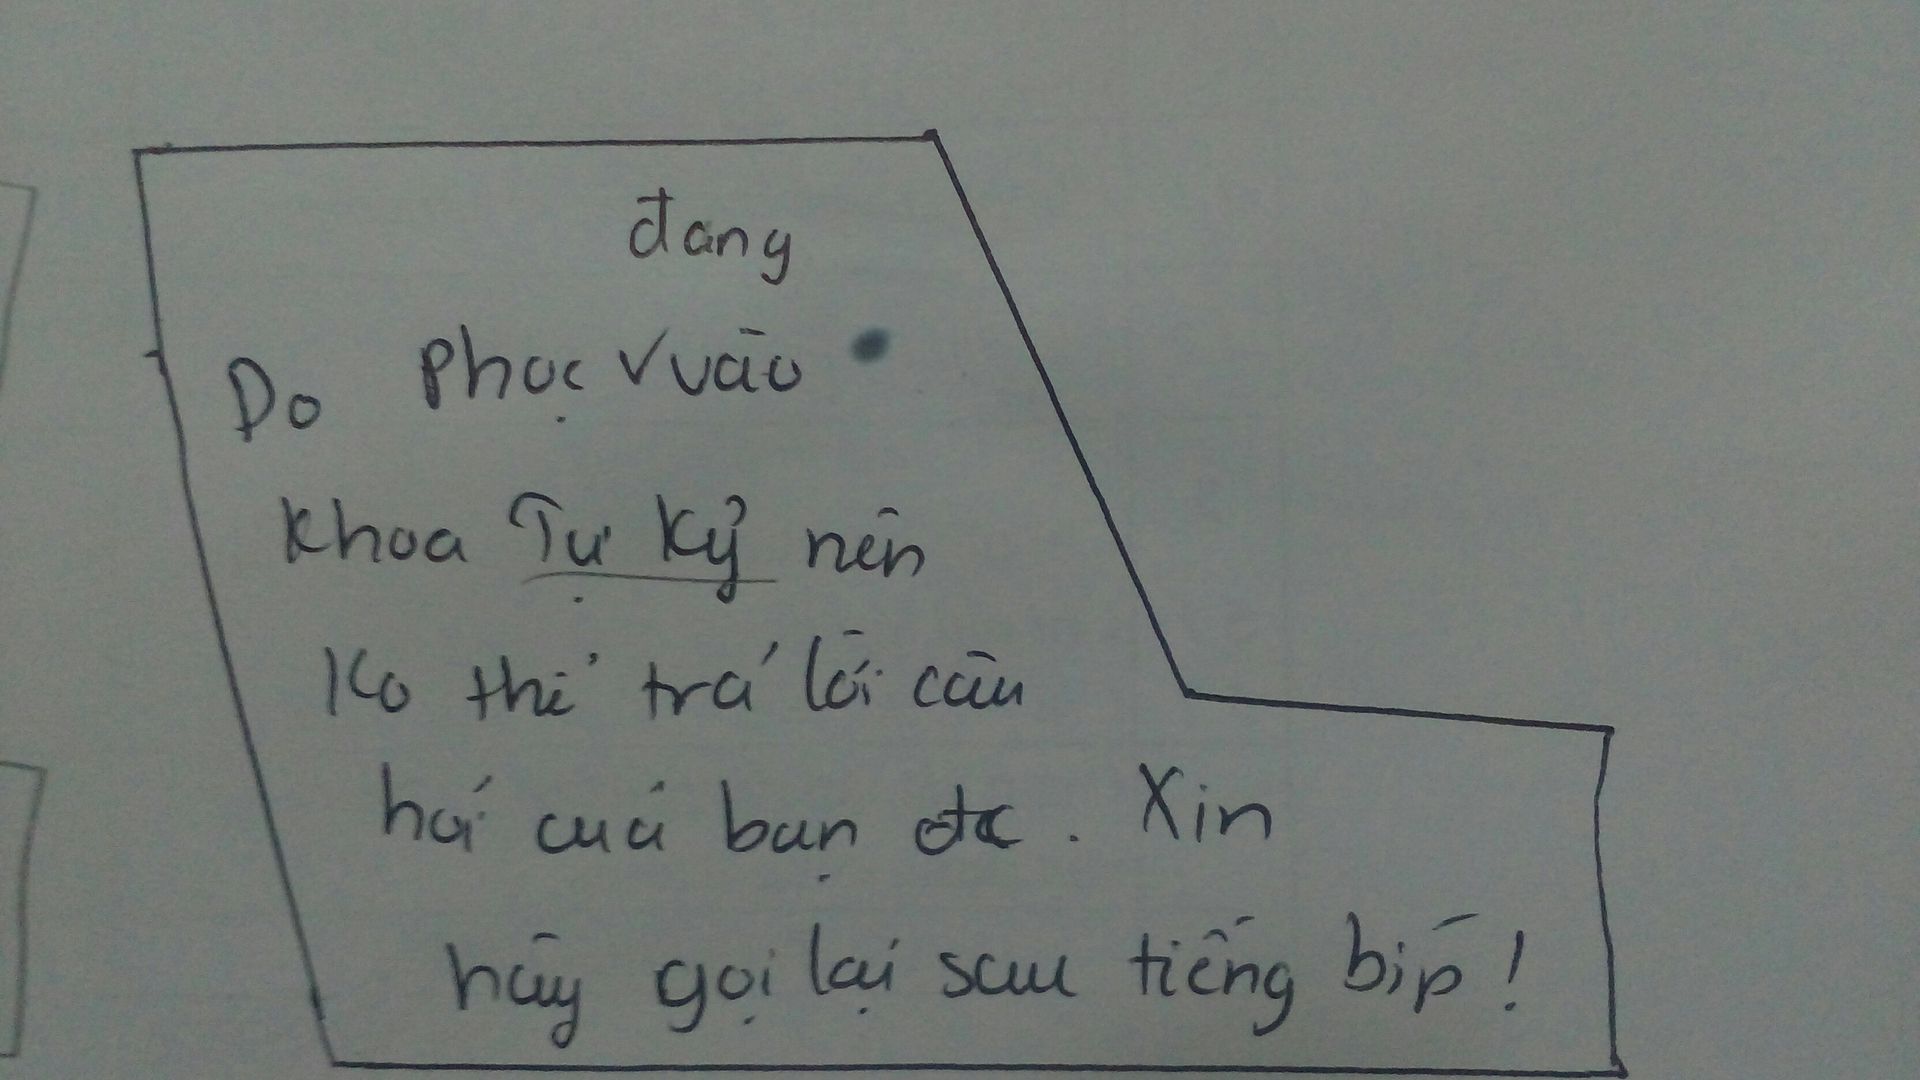 đang
Do Phọc √ vào
khoa Tự Kỷ nên
Ko thể trả lời câu
hỏi của bạn đc. Xin
hãy gọi lại sau tiếng bíp!